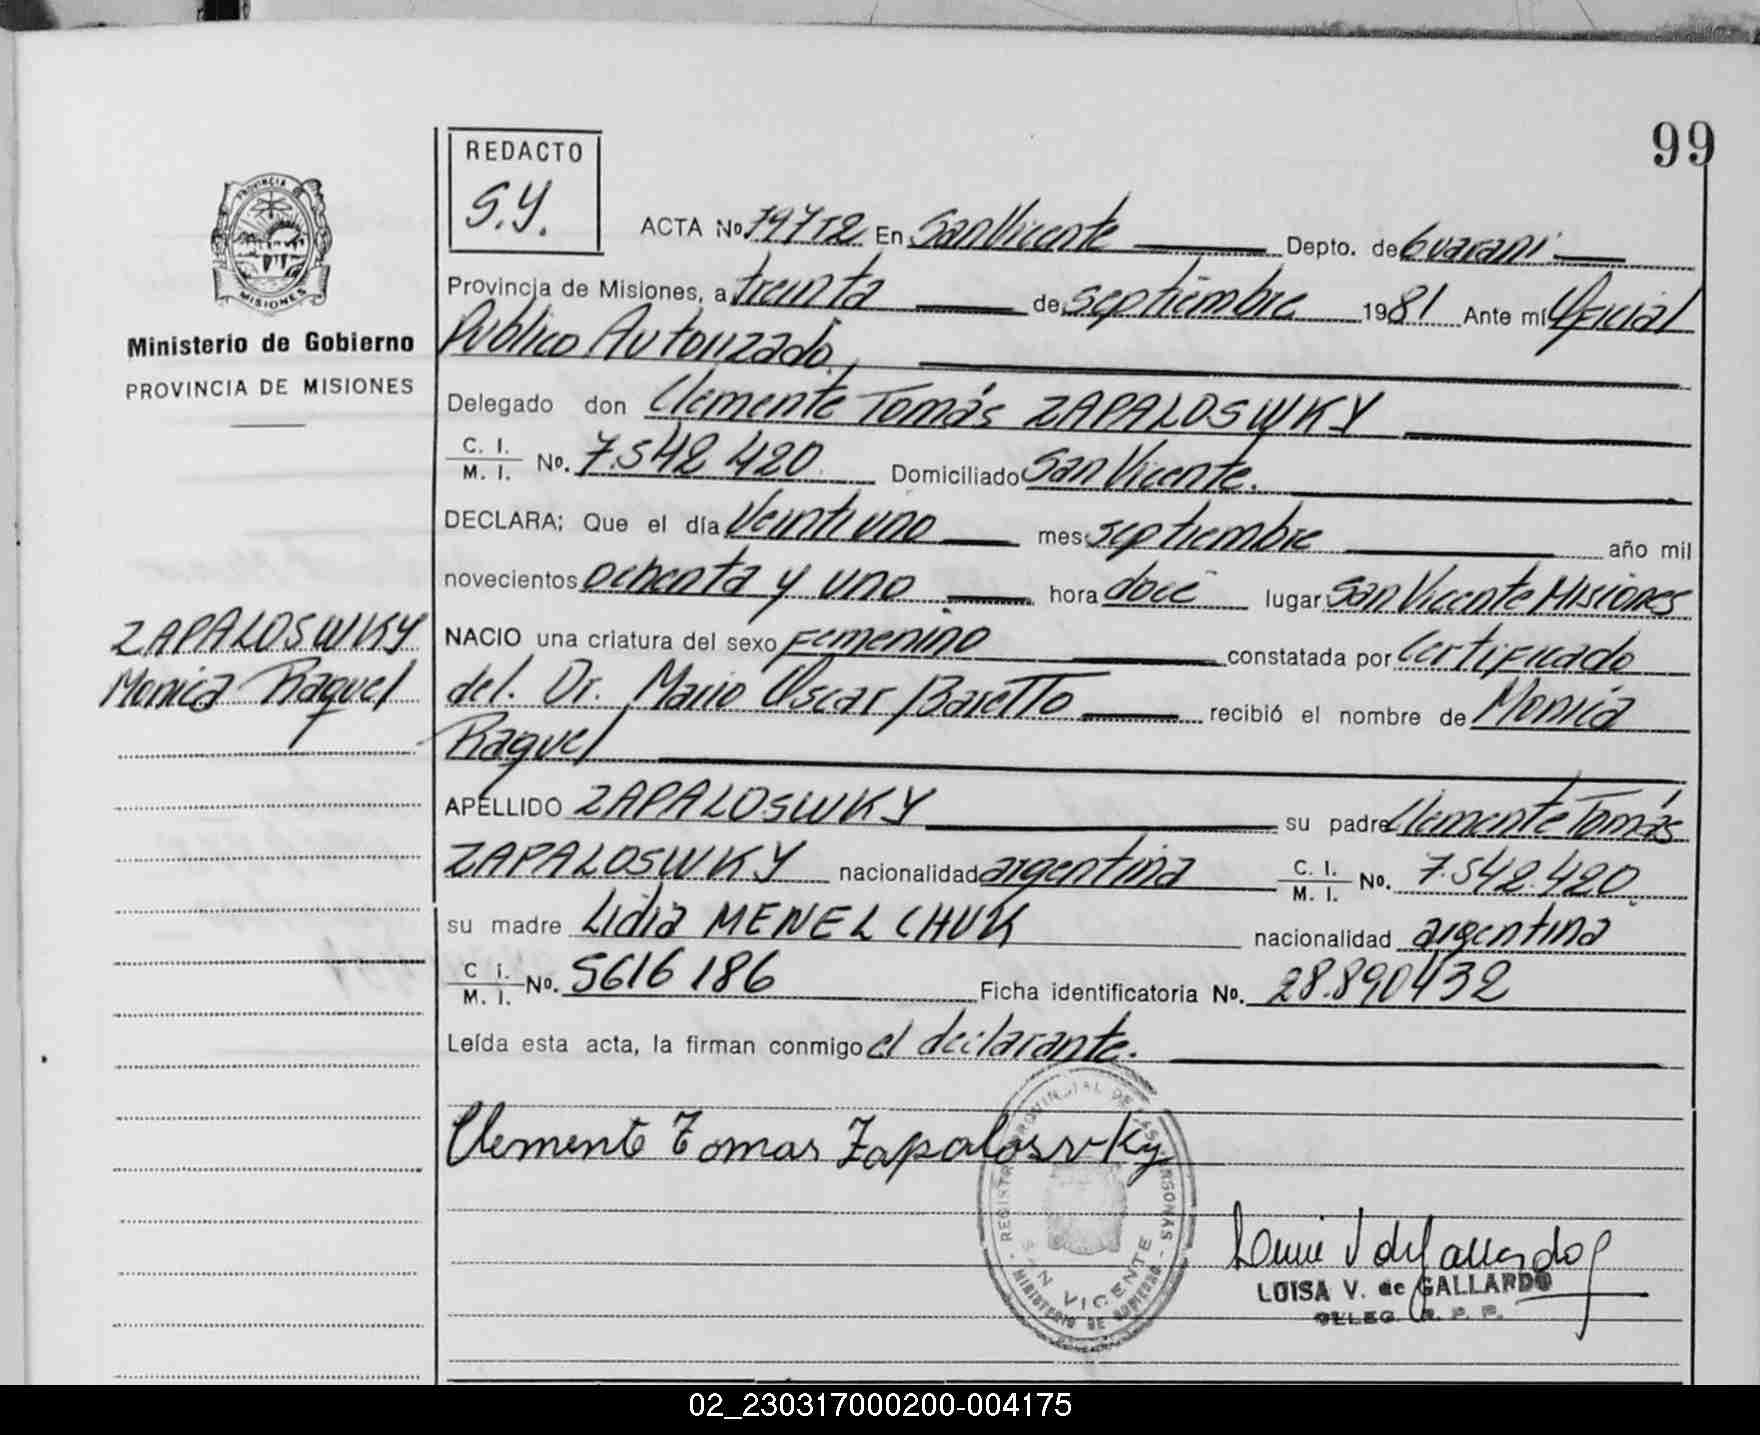 99
REDACTO
S.Y.
PROVINCIA
MISIONES
Ministerio de Gobierno
PROVINCIA DE MISIONES
ZAPALOSWKY
Monica Raquel
ACTA No 197T2 En San Vicente Depto. de Guarani
Provincia de Misiones, a treinta de septiembre 1981 Ante mi Oficial
Publico Autorizado,
Delegado don Clemente Tomás ZAPALOSWKY
C. I. / M. I. No. 7.542 420 Domiciliado San Vicente.
DECLARA; Que el día Veintiuno mes septiembre año mil
novecientos ochenta y uno hora doce lugar San Vicente Misiones
NACIO una criatura del sexo Femenino constatada por Certificado
del. Dr. Mario Oscar Baretto recibió el nombre de Monica
Raquel
APELLIDO ZAPALOSWKY su padre Clemente Tomás
ZAPALOSWKY nacionalidad argentina C. I. / M. I. No. 7.542.420
su madre Lidia MENELCHUK nacionalidad argentina
C. I. / M. I. No. 5616 186 Ficha identificatoria No. 28.890432
Leída esta acta, la firman conmigo el declarante.
Clemente Tomas Zapalosvky
REGISTRO PROVINCIAL DE LAS PERSONAS
SAN VICENTE
MINISTERIO DE GOBIERNO
V de Gallardo
LOISA V. de GALLARDO
DELEG. R. P. P.
02_230317000200-004175